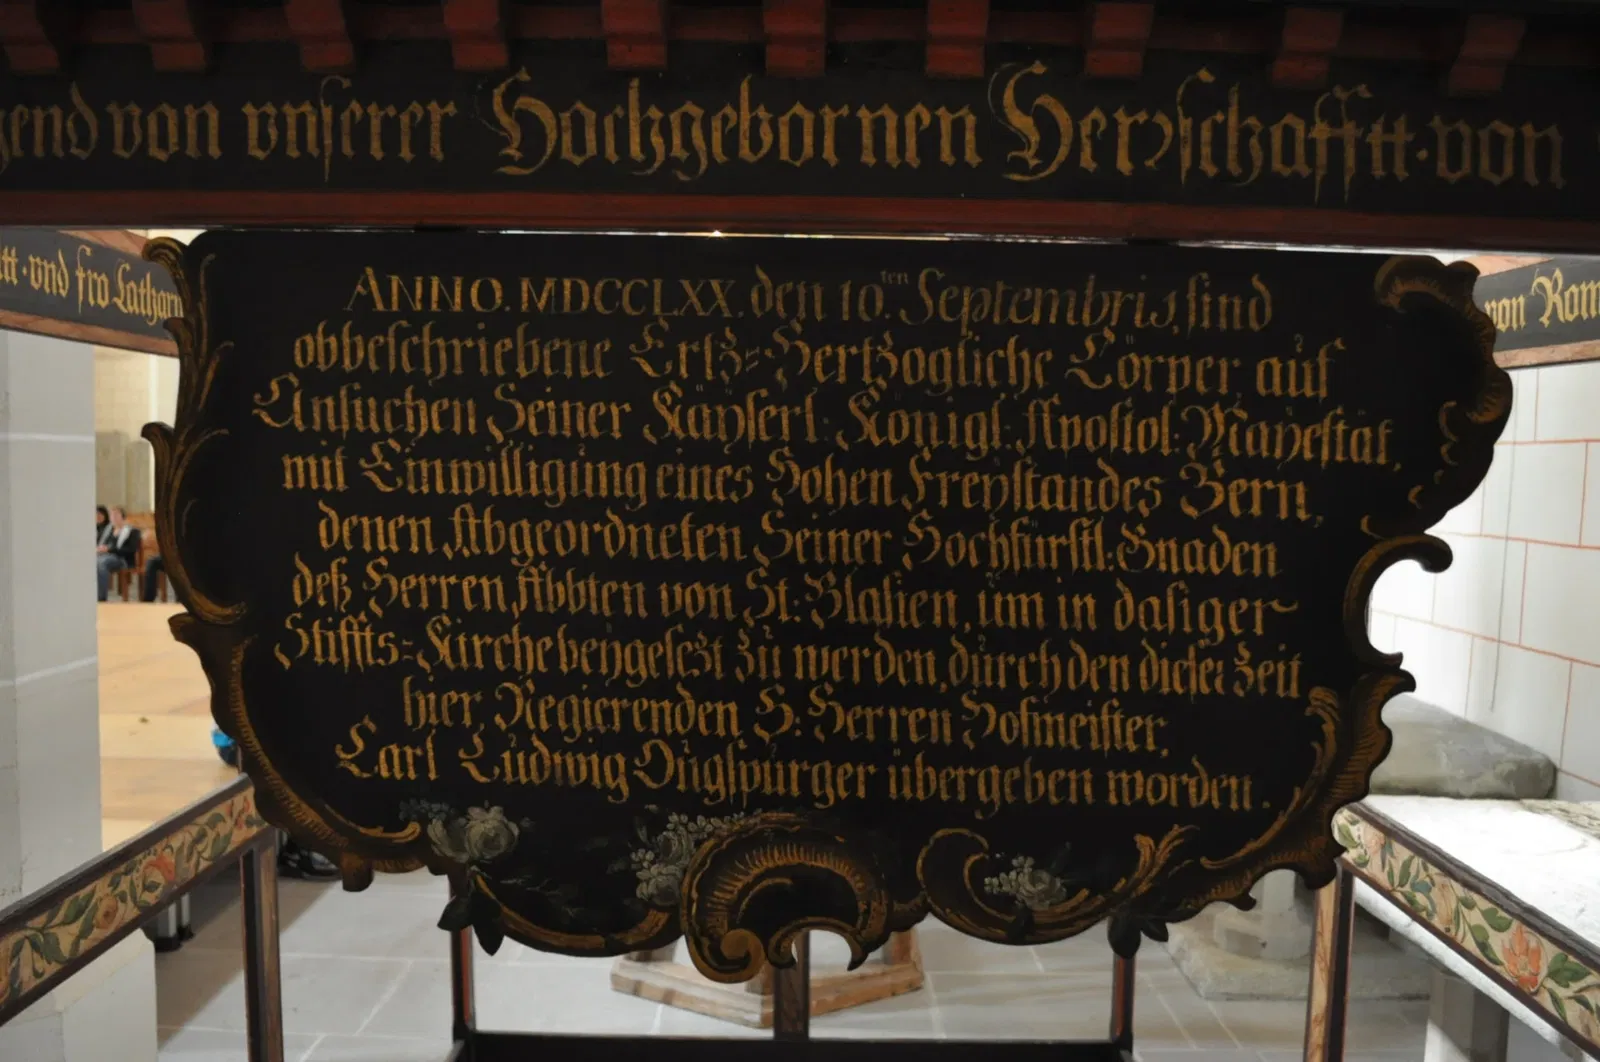 gend von vnserer Hochgebornen Herrschafftt · von
tt · vnd fro Catharn
von Rom
ANNO. MDCCLXX. den 10.ten Septembris, sind
obbeschriebene Ertz=Hertzogliche Cörper, auf
Ansuchen Seiner Kaÿserl: Königl: Apostol: Maÿestät,
mit Einwilligung eines Hohen Freÿstandes Bern,
denen Abgeordneten Seiner Hochfürstl: Gnaden
deß Herren Abbten von St: Blasien, um in dasiger
Stiffts=Kirche beÿgesezt zu werden, durch den dieser Zeit
hier, Regierenden H: Herren Hofmeister,
Carl Ludwig Ougspurger übergeben worden.